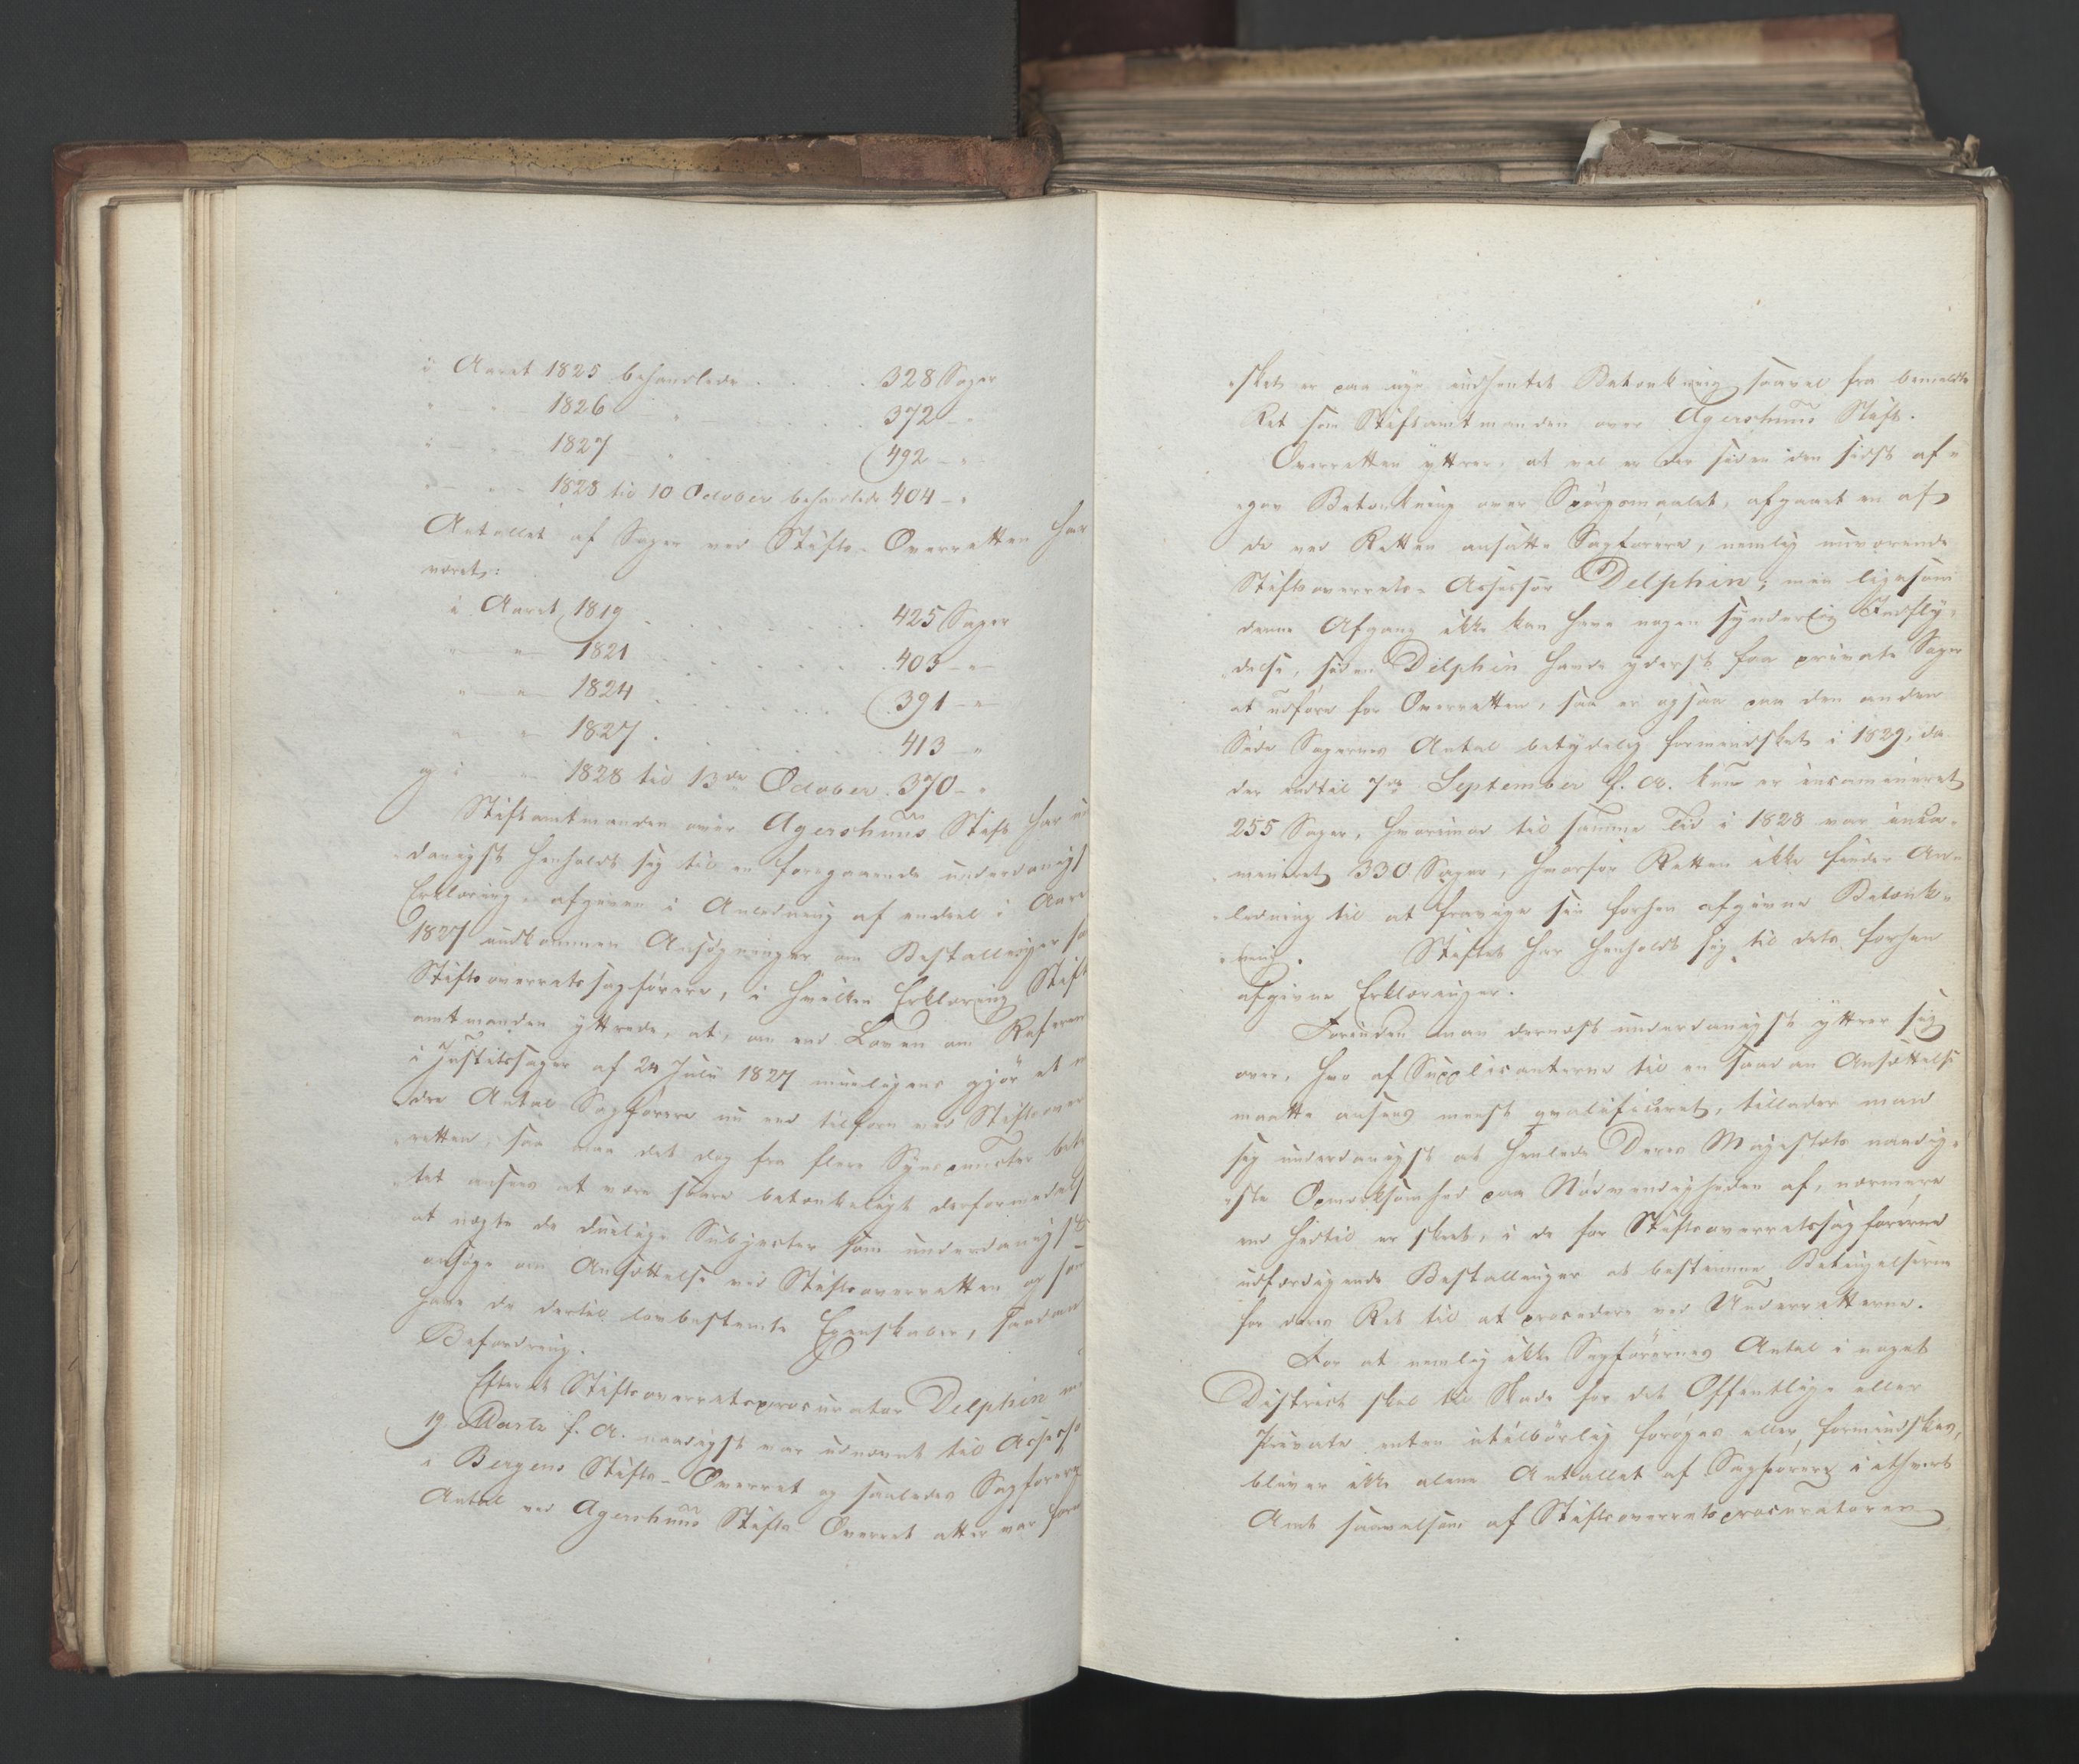 i Aaret 1825 behandlede . . . . 328 Sager
" — " — 1826 — " — . . . . 372 — "
" — " — 1827 — " — . . . . 492 — "
" — " — 1828 til 10 October behandlede 404 — "
Antallet af Sager ved Stifts-Overretten har
været:
i Aaret 1819 . . . . . . 425 Sager
" — " — 1821 . . . . . . 403 — " —
" — " — 1824 . . . . . . 391 — " —
" — " — 1827 . . . . . . 413 — "
og i — " 1828 til 13de October . 370 — "
Stiftamtmanden over Agershuus Stift har un
danigst henholdt sig til en foregaaende underdanigst
Erklæring afgiven i Anledning af endeel i Aaret
1827 indkommen Ansøgninger om Bestallinger so
Stiftsoverretssagførere, i hvilken Erklæring Stift
amtmanden yttrede, at, om end Loven om Referen
i Justitssager af 24 Julii 1827 mueligens gjør et m
dre Antal Sagførere nu end tilforn ved Stiftsover
retten, saa maa det dog fra flere Synspuncter bet
tet ansees at være stare betænkeligt derformedelst
at nægte de duelige Subjecter som underdanigst
ansøge om Ansættelse ved Stiftsoverretten og som
have de dertil lovbestemte Egenskaber, saadan
Befordring.
Efterat Stiftsoverretsprocurator Delphin un
19 Marts f. A. naadigst var udnævnt til Assesso
i Bergens Stifts-Overret og saaledes Sagførernes
Antal ved Agershuus Stifts Overret atter var form
sket er paa nye indhentet Betænkning saavel fra bemeldte
Ret som Stiftamtmanden over Agershuus Stift.
Overretten yttrer, at vel er der siden den sidst af-
gav Betænkning over Spörgsmaalet, afgaaet en af
de ved Retten ansatte Sagførere, nemlig nuværende
Stiftsoverrets-Assessor Delphin; men ligesom
denne Afgang ikke kan have nogen synderlig Indfly-
delse, siden Delphin havde yderst faa private Sager
at udføre for Overretten, saa er ogsaa paa den anden
Side Sagernes Antal betydelig formindsket i 1829, da
der indtil 7de September f. A. kun er incamineret
255 Sager, hvorimod til samme Tid i 1828 var inca-
mineret 330 Sager, hvorfor Retten ikke finder An-
ledning til at fravige sin forhen afgivne Betænk-
ning. Stiftet har henholdt sig til dets forhen
afgivne Erklæringer.
Forinden man dernæst underdanigst yttrer sig
over, hvo af Supplicanterne til en saadan Ansættelse
maatte ansees meest qvalificeret, tillader man
sig underdanigst at henlede Deres Majestæts naadig-
ste Opmærksomhed paa Nødvendigheden af, nærmere
end hidtil er skeet, i de for Stiftsoverretssagførerne
udfærdigende Bestallinger at bestemme Betingelserne
for deres Ret til at procedere ved Underretterne.
For at nemlig ikke Sagførernes Antal i noget
District skal til Skade for det Offentlige eller
Private enten utilbørlig forøges eller formindskes,
bliver ikke alene Antallet af Sagførere i ethvert
Amt saavelsom af Stiftsoverretsprocuratorer